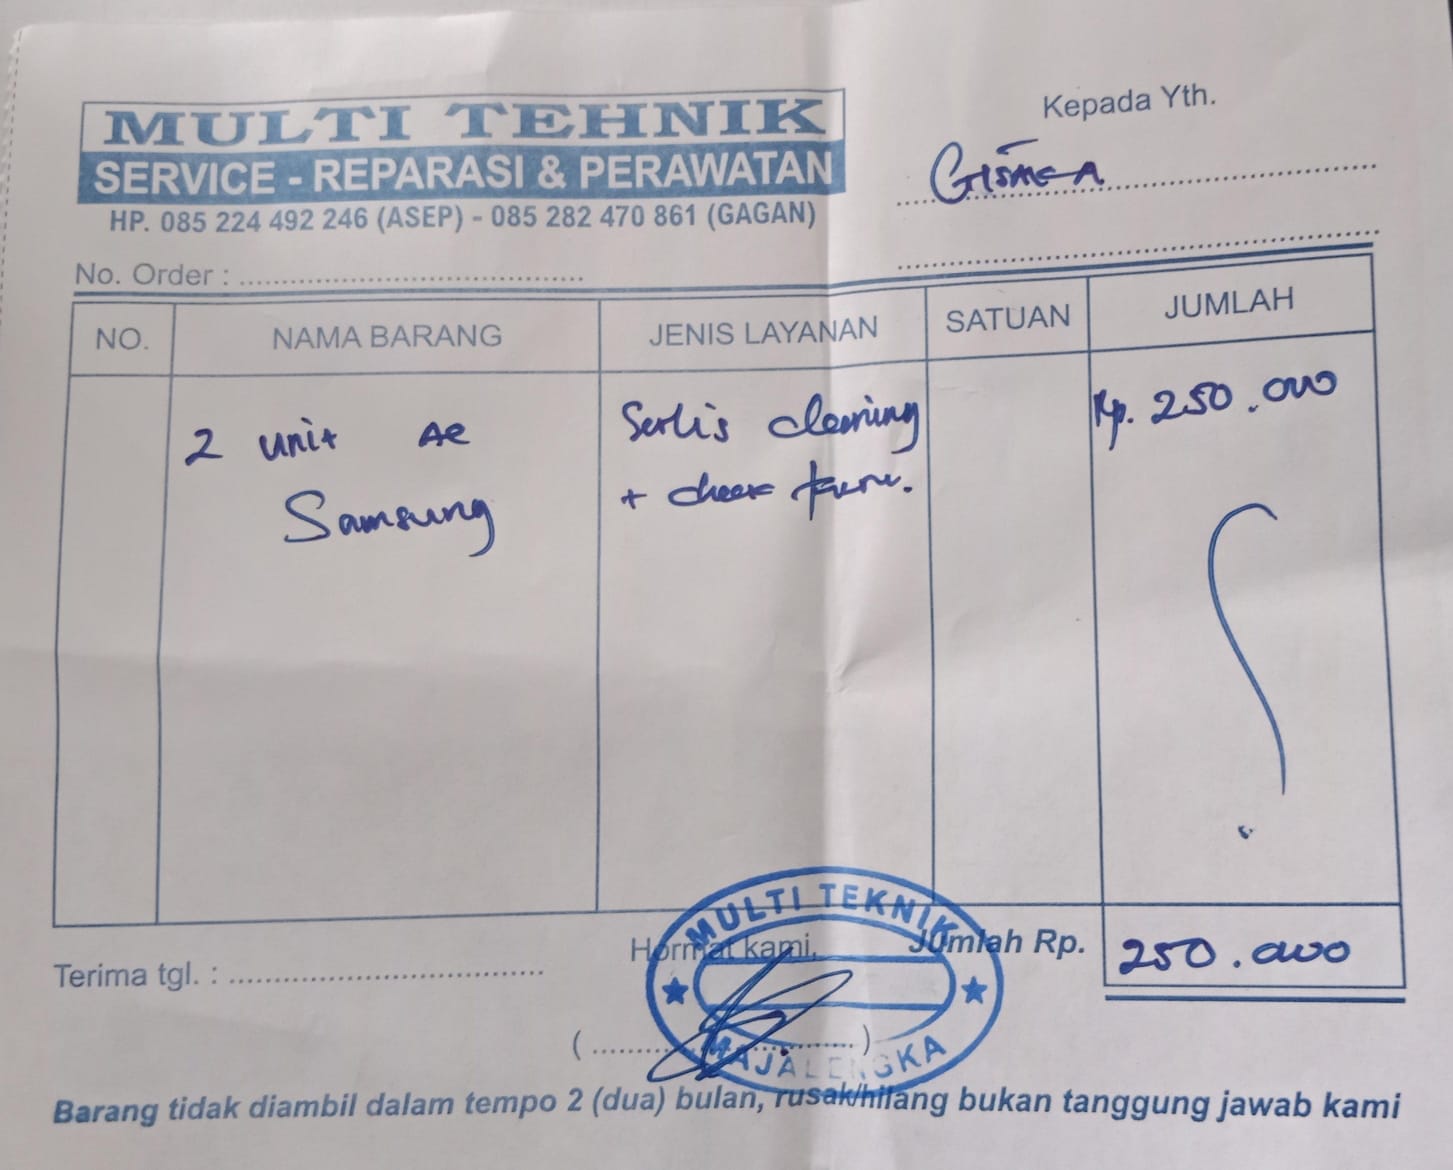 MULTI TEHNIK
SERVICE - REPARASI & PERAWATAN
HP. 085 224 492 246 (ASEP) - 085 282 470 861 (GAGAN)
Kepada Yth.
No. Order :
NO. NAMA BARANG JENIS LAYANAN SATUAN JUMLAH
2 unit AC Servis cleaning Rp. 250.000
Samsung + check
Terima tgl. : Hormat kami, Jumlah Rp. 250.000
MULTI TEKNIK
MAJALENGKA
Barang tidak diambil dalam tempo 2 (dua) bulan, rusak/hilang bukan tanggung jawab kami